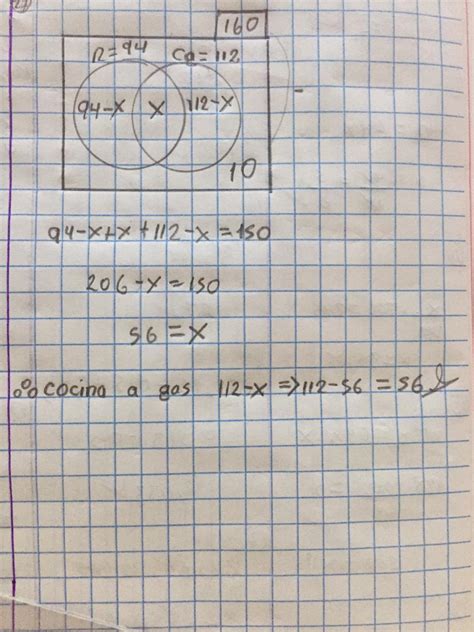 27)
160
R=94 Ca=112
94-x x 112-x
10
94-x+x+112-x=150
206-x=150
56=x
∴ cocina a gas 112-x⇒112-56=56